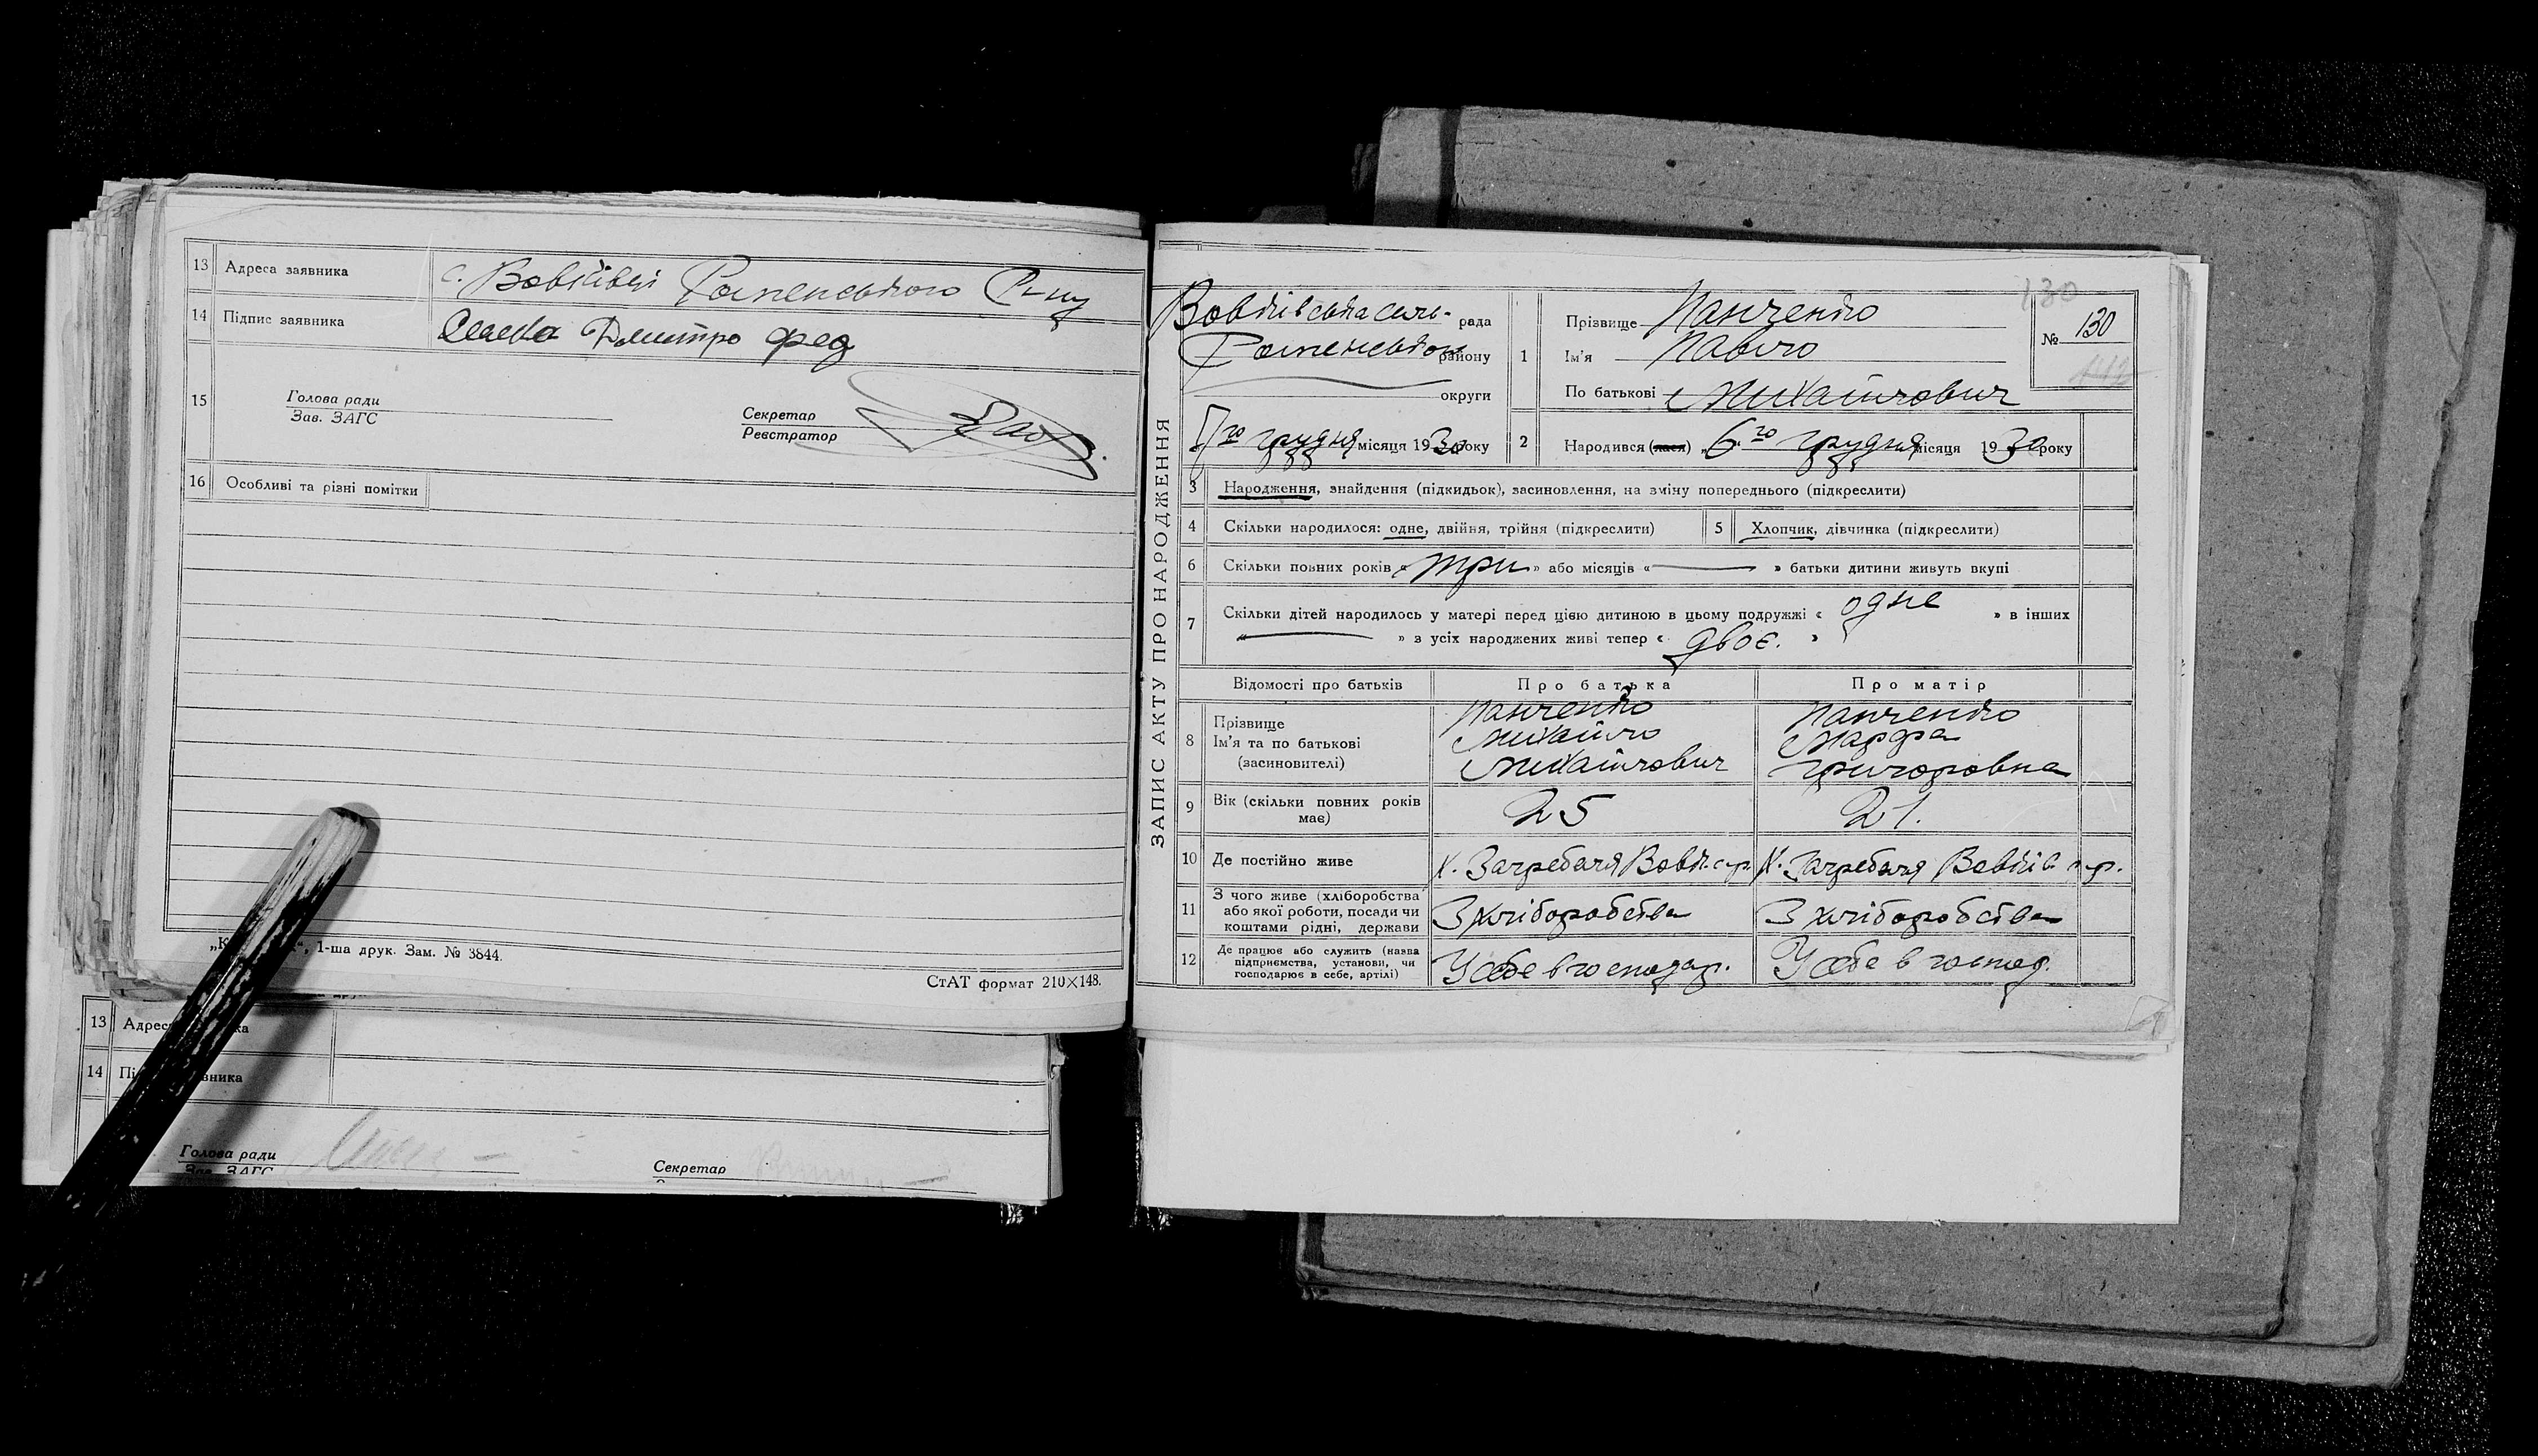 13 Адреса заявника с. Вовківці Роменського Р-ну
14 Підпис заявника Дмитро Фед
15 Голова ради
Зав. ЗАГС
Секретар
Реєстратор
16 Особливі та різні помітки
1-ша друк. Зам. № 3844.
СтАТ формат 210×148.
13
14
Голова ради
Зав. ЗАГС
Секретар
ЗАПИС АКТУ ПРО НАРОДЖЕННЯ
130
Вовківська сель- рада
Роменського району
округи
7го грудня місяця 1930 року
1 Прізвище Панченко
Ім'я Павло
По батькові Михайлович
№ 130
2 Народився (лася) „6го грудня місяця 1930 року
3 Народження, знайдення (підкидьок), засиновлення, на зміну попереднього (підкреслити)
4 Скільки народилося: одне, двійня, трійня (підкреслити) 5 Хлопчик, дівчинка (підкреслити)
6 Скільки повних років « три » або місяців « — » батьки дитини живуть вкупі
7 Скільки дітей народилось у матері перед цією дитиною в цьому подружжі « одне » в інших
« — » з усіх народжених живі тепер « двоє. »
Відомості про батьків Про батька Про матір
8 Прізвище Панченко Панченко
Ім'я та по батькові Михайло Марфа
(засиновителі) Михайлович Григоровна
9 Вік (скільки повних років має) 25 21.
10 Де постійно живе х. Загребеля Вовк. с-р. х. Загребеля Вовків с-р.
11 З чого живе (хліборобства
або якої роботи, посади чи З хліборобства З хліборобства
коштами рідні, держави
12 Де працює або служить (назва
підприємства, установи, чи У себе в господар. У себе в господ.
господарює в себе, артілі)